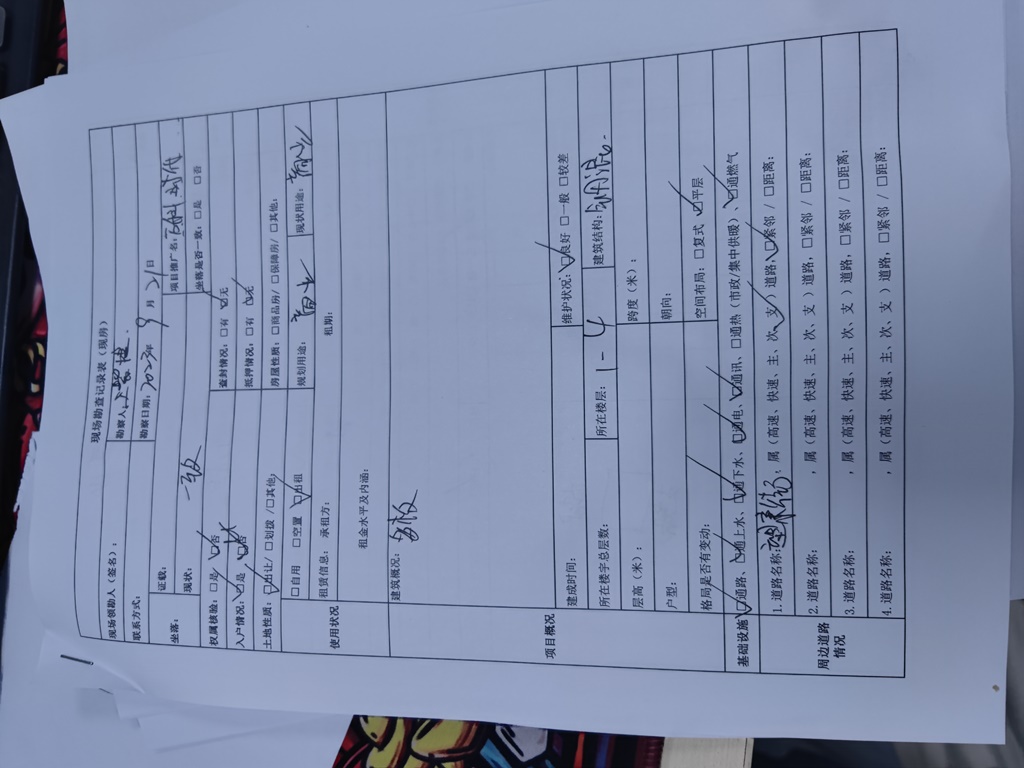 现场勘查记录表（现房）
现场领勘人（签名）： 勘察人：
联系方式： 勘察日期：2023年 9 月 21 日
坐落： 证载： 项目推广名： 时代
现状：一致 坐落是否一致：□是 □否
权属核验：□是 ☑否 查封情况：□有 ☑无
入户情况：☑是 □否 抵押情况：□有 ☑无
土地性质：☑出让/ □划拨 /□其他: 房屋性质：□商品房/ □保障房/ □其他:
使用状况 □自用 □空置 ☑出租 规划用途：商业 现状用途：商业
租赁信息： 承租方： 租期：
租金水平及内涵：
项目概况 建筑概况：
建成时间： 维护状况：☑良好 □一般 □较差
所在楼宇总层数： 所在楼层：1-4 建筑结构：钢混
层高（米）： 跨度（米）：
户型： 朝向：
格局是否有变动： 空间布局：□复式 ☑平层
基础设施 ☑通路、☑通上水、☑通下水、☑通电、☑通讯、□通热（市政/集中供暖）、☑通燃气
周边道路情况 1. 道路名称： ，属（高速、快速、主、次、支）道路，☑紧邻 / □距离：
2. 道路名称： ，属（高速、快速、主、次、支）道路，□紧邻 / □距离：
3. 道路名称： ，属（高速、快速、主、次、支）道路，□紧邻 / □距离：
4. 道路名称： ，属（高速、快速、主、次、支）道路，□紧邻 / □距离：